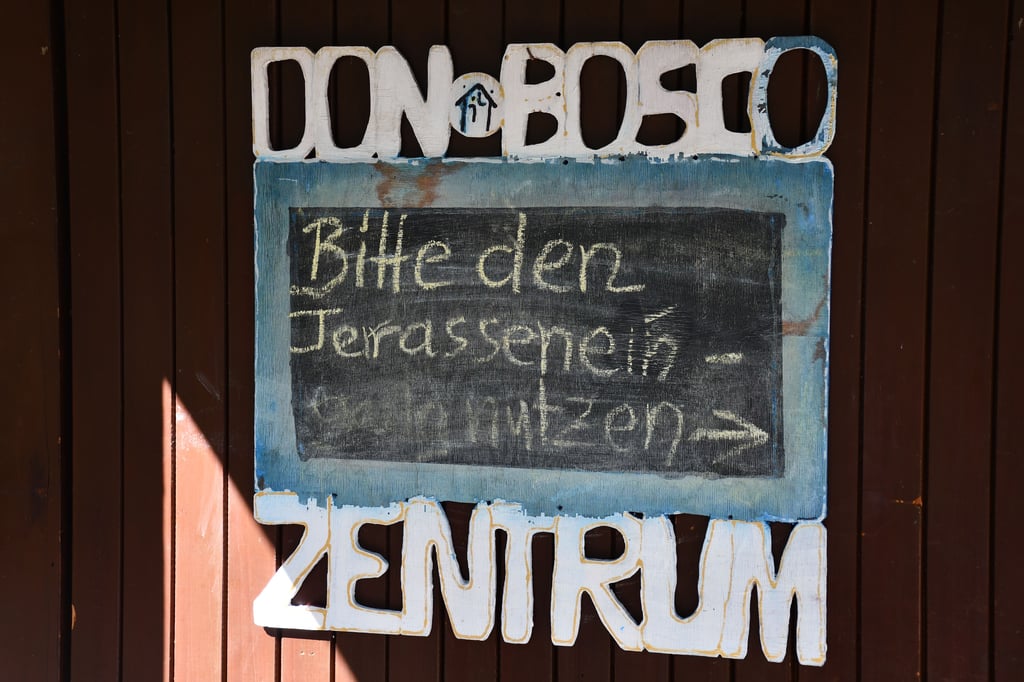 DON BOSCO
Bitte den
Terrassenein-
nutzen →
ZENTRUM